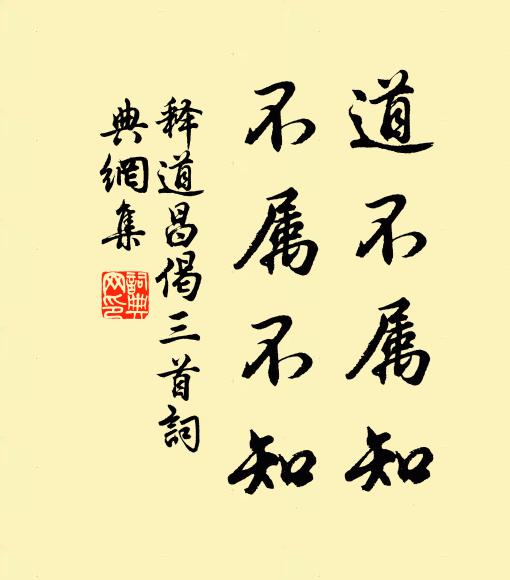 道不属知
不属不知
释道昌偈三首詞
典網集
詞典
网印